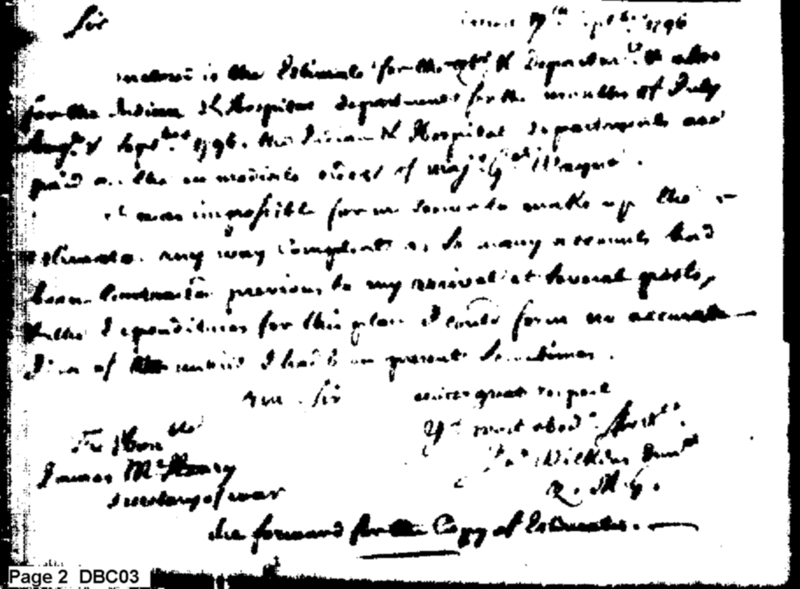 Sir 19th Septber 1796
inclosed is the Estimate for the Qr Mr Department & also
for the Indian & Hospital department for the months of July
Augt & Septber 1796. the Indian & Hospital departments are
paid on the immediate orders of Majr Genl Wayne.
It was impossible for me sooner to make up the
estimate any way compleat as so many accounts had
been Contracted previous to my arrival at several posts,
& the Expenditures for this place I could form no accurate
Idea of untill I had been present sometime.
I am Sir with great respect
Yr most obedt Servt
The Honble
James McHenry
Secretary of war
Jno Wilkins Junr
Q. M. G.
see forward for the Copy of Estimates.
Page 2 DBC03